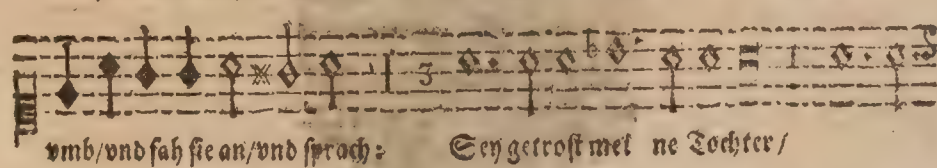 vmb/vnd sah sie an/vnd sprach: Sey getrost mei ne Tochter/